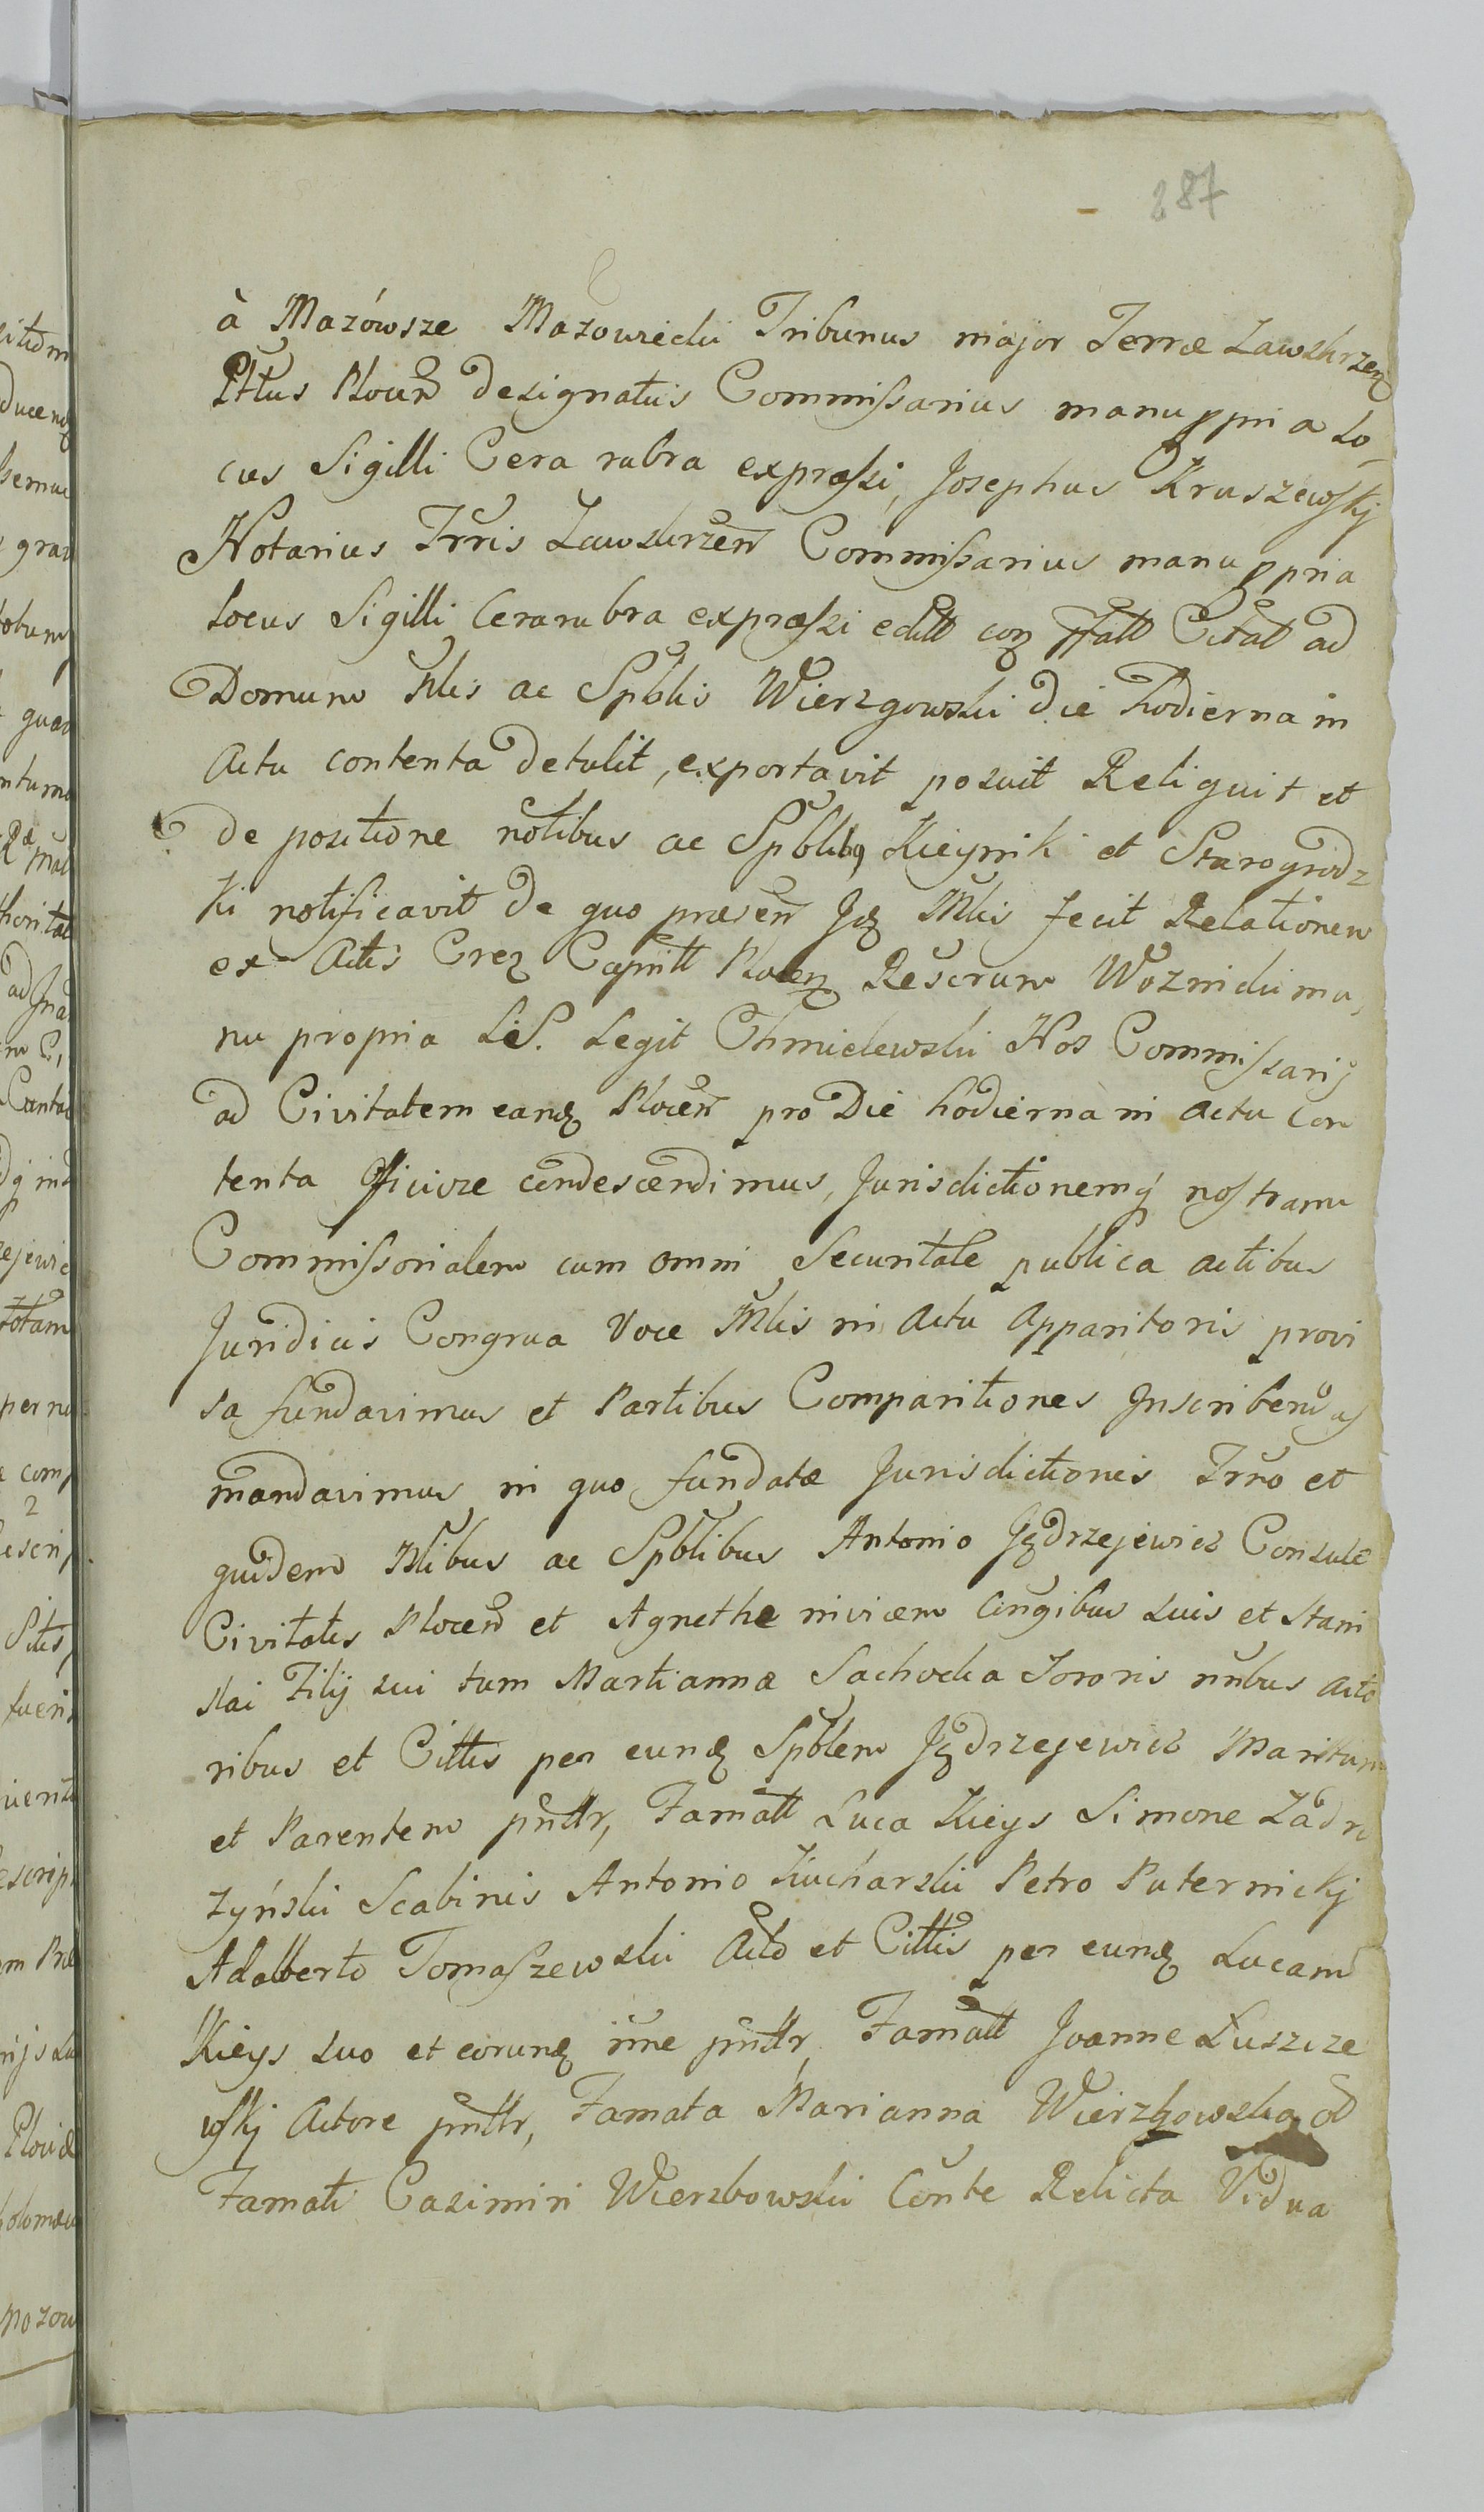 287
à Mazówsze Mazowiecki Tribunus major Terræ Zawskrzen
Pltus Plocen designatus Commissarius manu ppria Lo-
cus Sigilli Cera rubra expræssi, Josephus Kruszewskj
Notarius Trris Zawskrzen Commissarius manu ppria
Locus Sigilli Cera rubra expræssi editt coq Citat ad
Domum Nlis ac Spblis Wierzgowski die hodierna in
Actu contenta detulit, exportavit posuit Reliquit et
de positione notibus ac Spblibq Kieynik et Starogrodz
ki notificavit de quo præsen Jdq Mlis fecit Relationem
ex Actis Crez Capitt Plocen Rescrum Woznicki ma,
nu propria L:S. Legit Chmielewski Nos Commissarij
ad Civitatem eandq Plocen pro Die hodierna in Actu Con
tenta condescendimus, Jurisdictionemq nostram
Commissorialem cum omni Securitate publica actibus
Juridicis Congrua Voce Mlis in Actu Apparitoris provi
sa fundavimus et Partibus Comparitiones Inscribendas
mandavimus in quo fundatæ Jurisdictionis Trno et
quidem Nlibus ac Spblibus Antonio Jędrzejewicz Consule
Civitatis Plocen et Agnethe invicem Congibus Suis et Stani
slai Filij sui tum Martianna Sachocka Sororis nnbus Acto
ribus et Cittis per eundq Spblem Jędrzejewicz Maritum
et Parentem pnttr, Famatt Luca Kieys Simone Zadro
żyński Scabinis Antonio Kucharski Petro Puternickj
Adalberto Tomaszewski Acto et Cittis per eundq Lucam
Kieys suo et eorundq nne pnttr, Famatt Joanne Łuszcze
wskj Actore pnttr, Famata Marianna Wierzbowska od
Famati Casimiri Wierzbowski Conte Relicta Vidua